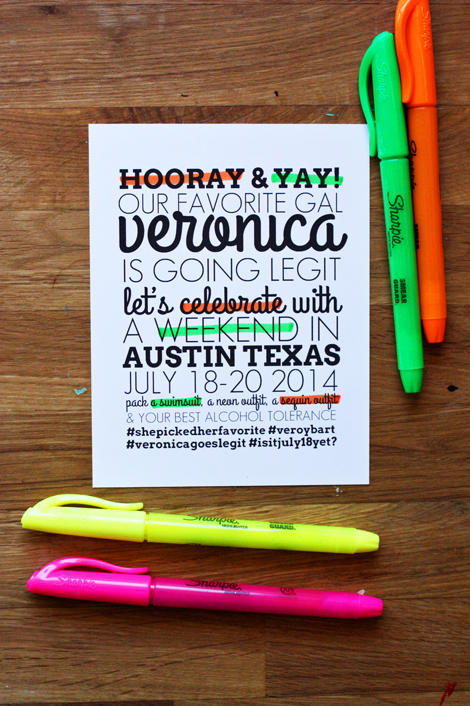 HOORAY & YAY!
OUR FAVORITE GAL
veronica
IS GOING LEGIT
let's celebrate with
A WEEKEND IN
AUSTIN TEXAS
JULY 18-20 2014
pack a swimsuit, a neon outfit, a sequin outfit
& YOUR BEST ALCOHOL TOLERANCE
#shepickedherfavorite #veroybart
#veronicagoeslegit #isitjuly18yet?
Sharpie
Sharpie
SMEAR GUARD
Sharpie
Sharpie
HIGHLIGHTER
SMEAR GUARD
Sharpie
Sharpie